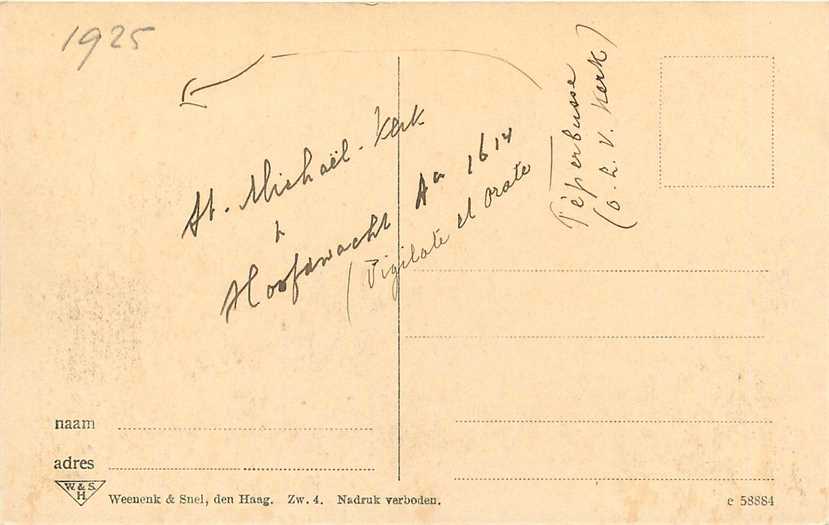 1925
St. Michaël-Kerk
&
Hoofdwacht Ao 1614
(Vigilate et Orate
Peperbusse
(O.L.V. Kerk)
naam
adres
W.&S.
H.
Weenenk & Snel, den Haag. Zw. 4. Nadruk verboden.
e 58884